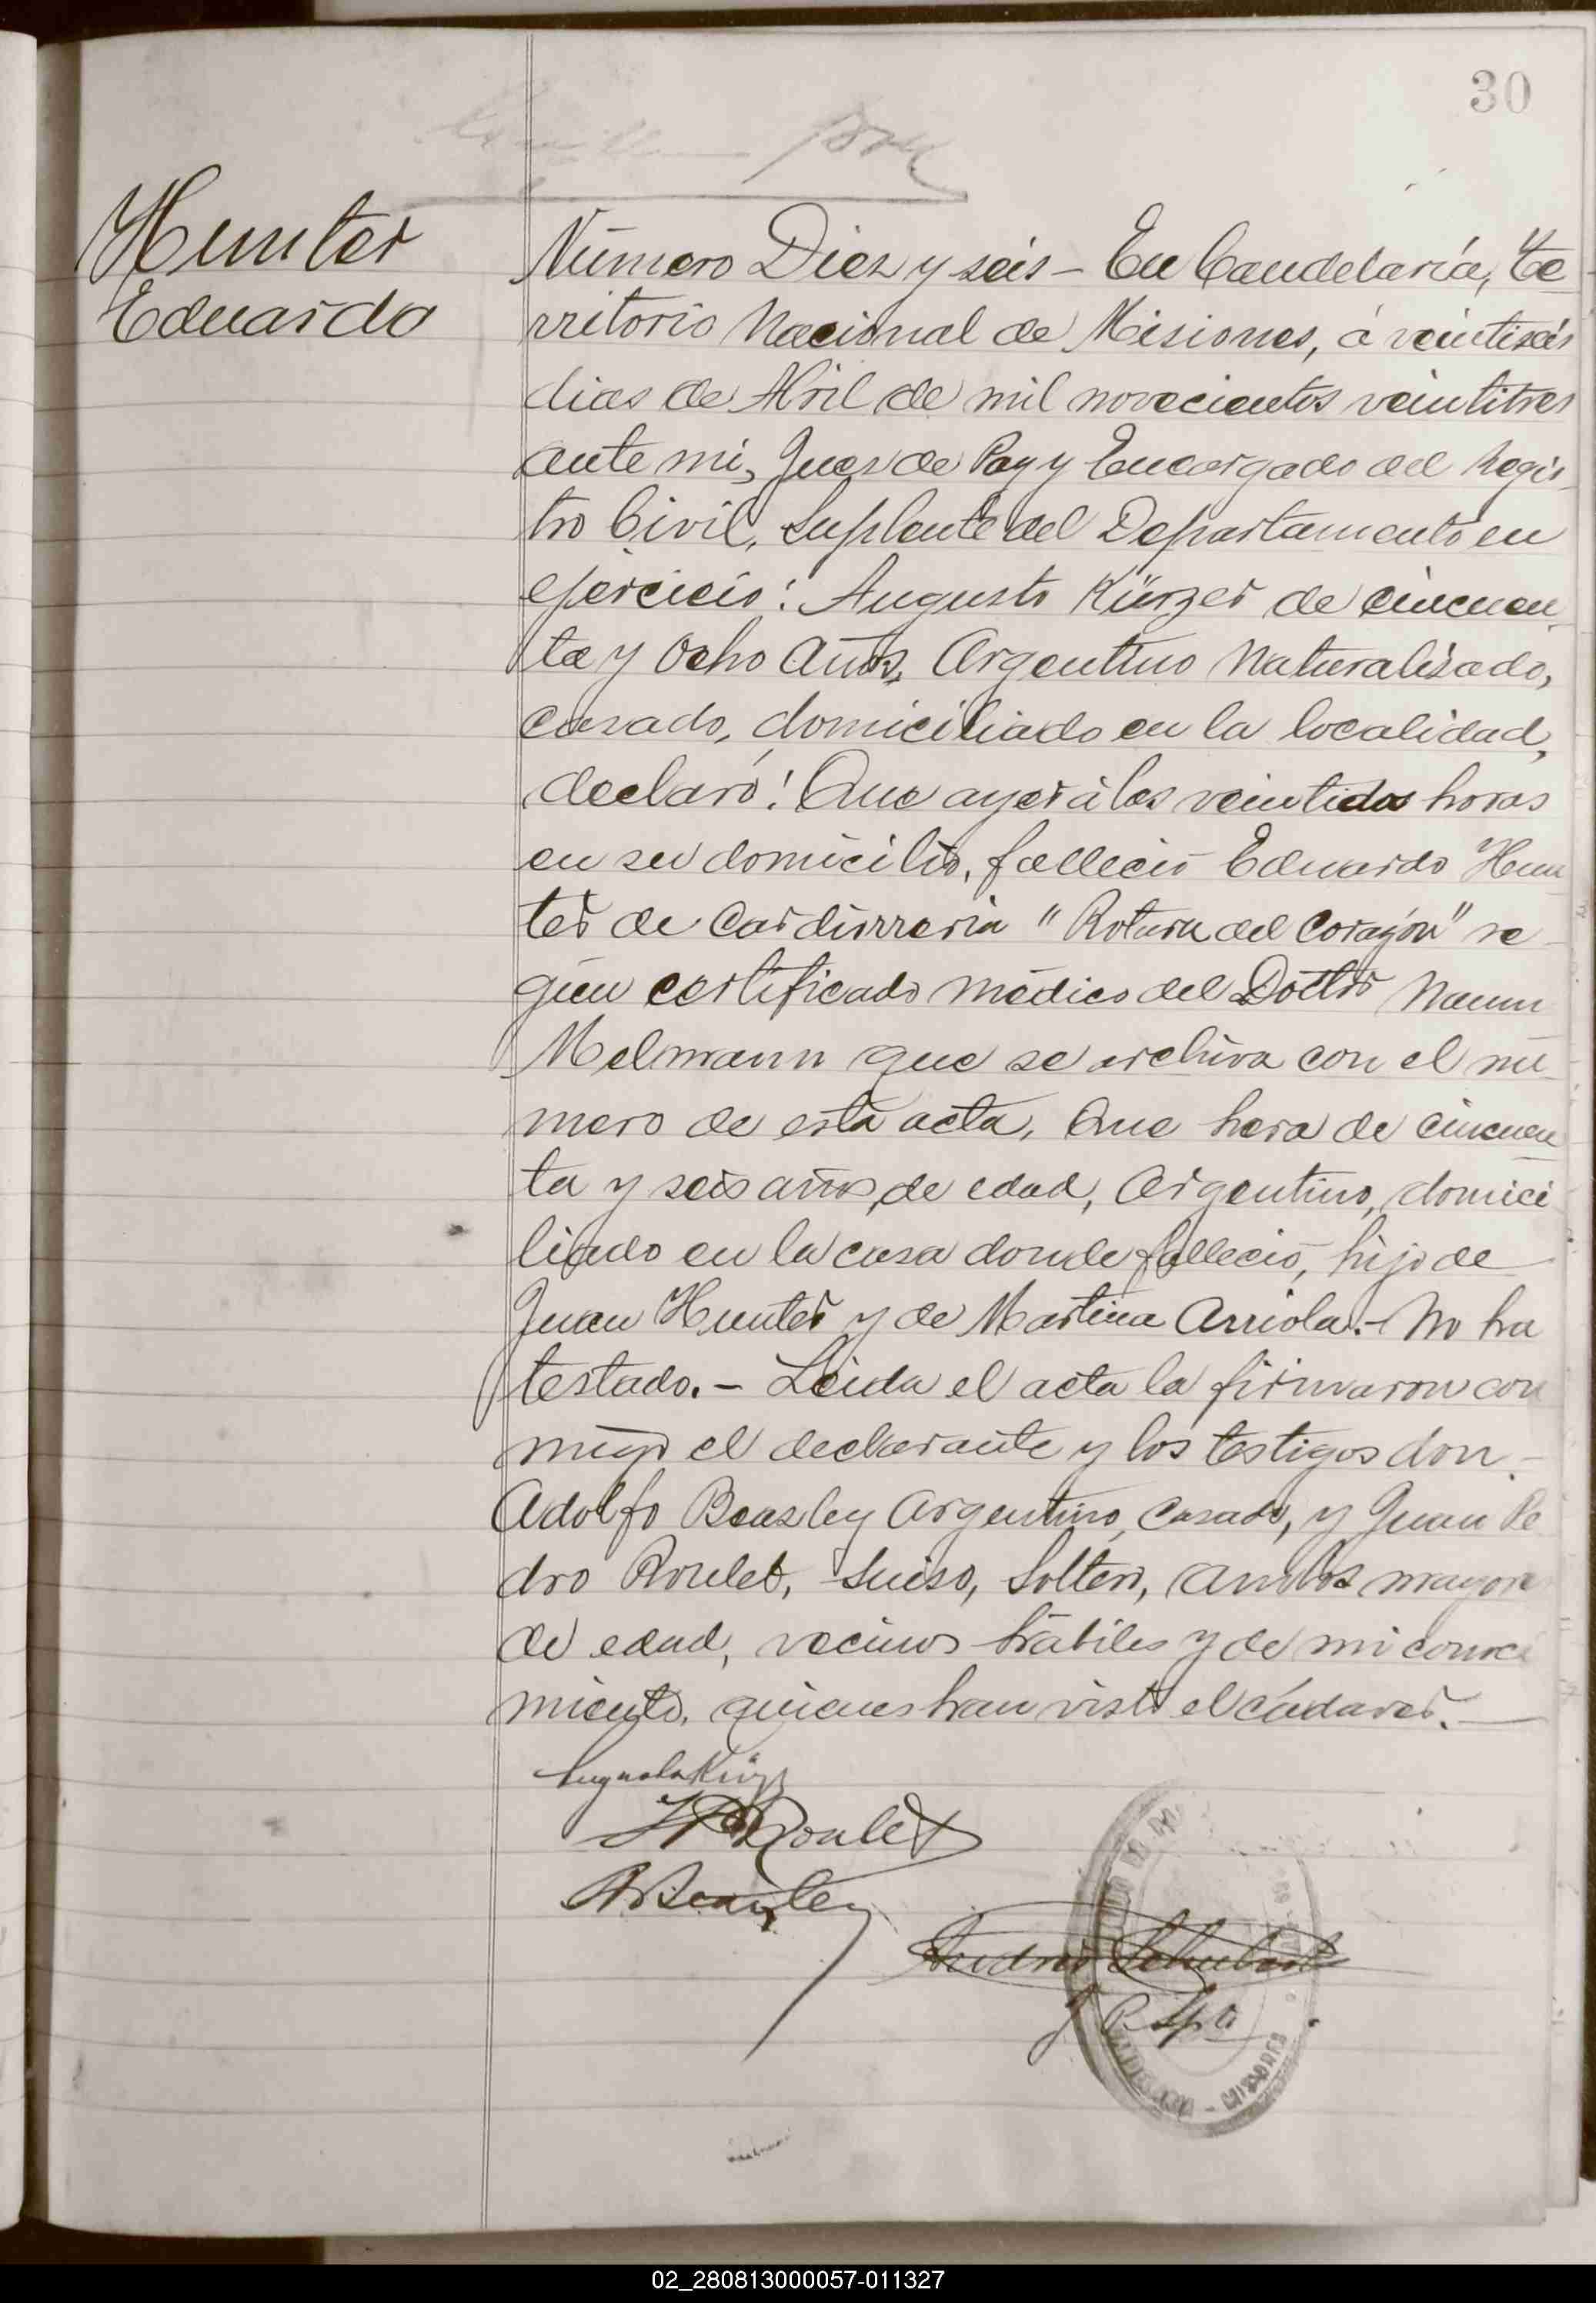 30
Hunter
Eduardo
Número Diez y seis - En Candelaria, Te
rritorio Nacional de Misiones, á veintiseis
dias de Abril de mil novecientos veintitres
ante mi, Juez de Paz y Encargado del Regis
tro Civil, Suplente del Departamento en
ejercicio: Augusto Kürzer de cincuen
ta y Ocho Años, Argentino Naturalizado,
casado, domiciliado en la localidad,
declaró: Que ayer á las veintidos horas
en su domicilio, falleció Eduardo Hun
ter de Cardiurrexia "Rotura del Corazón" se
gún certificado médico del Doctor Naum
Melmann que se archiva con el nú
mero de esta acta, Que hera de cincuen
ta y seis años de edad, Argentino, domici
liado en la casa donde falleció, hijo de
Juan Hunter y de Martina Arriola.- No ha
testado.- Leida el acta la firmaron con
migo el declarante y los testigos don -
Adolfo Beazley Argentino, Casado, y Juan Pe
dro Roulet, Suiso, Soltero, Ambos mayores
de edad, vecinos hábiles y de mi conoci
miento, quienes han visto el cádaver.-
JP Roulet
ABeazley
Andres Schubert
J P Spte
MISIONES
02_280813000057-011327